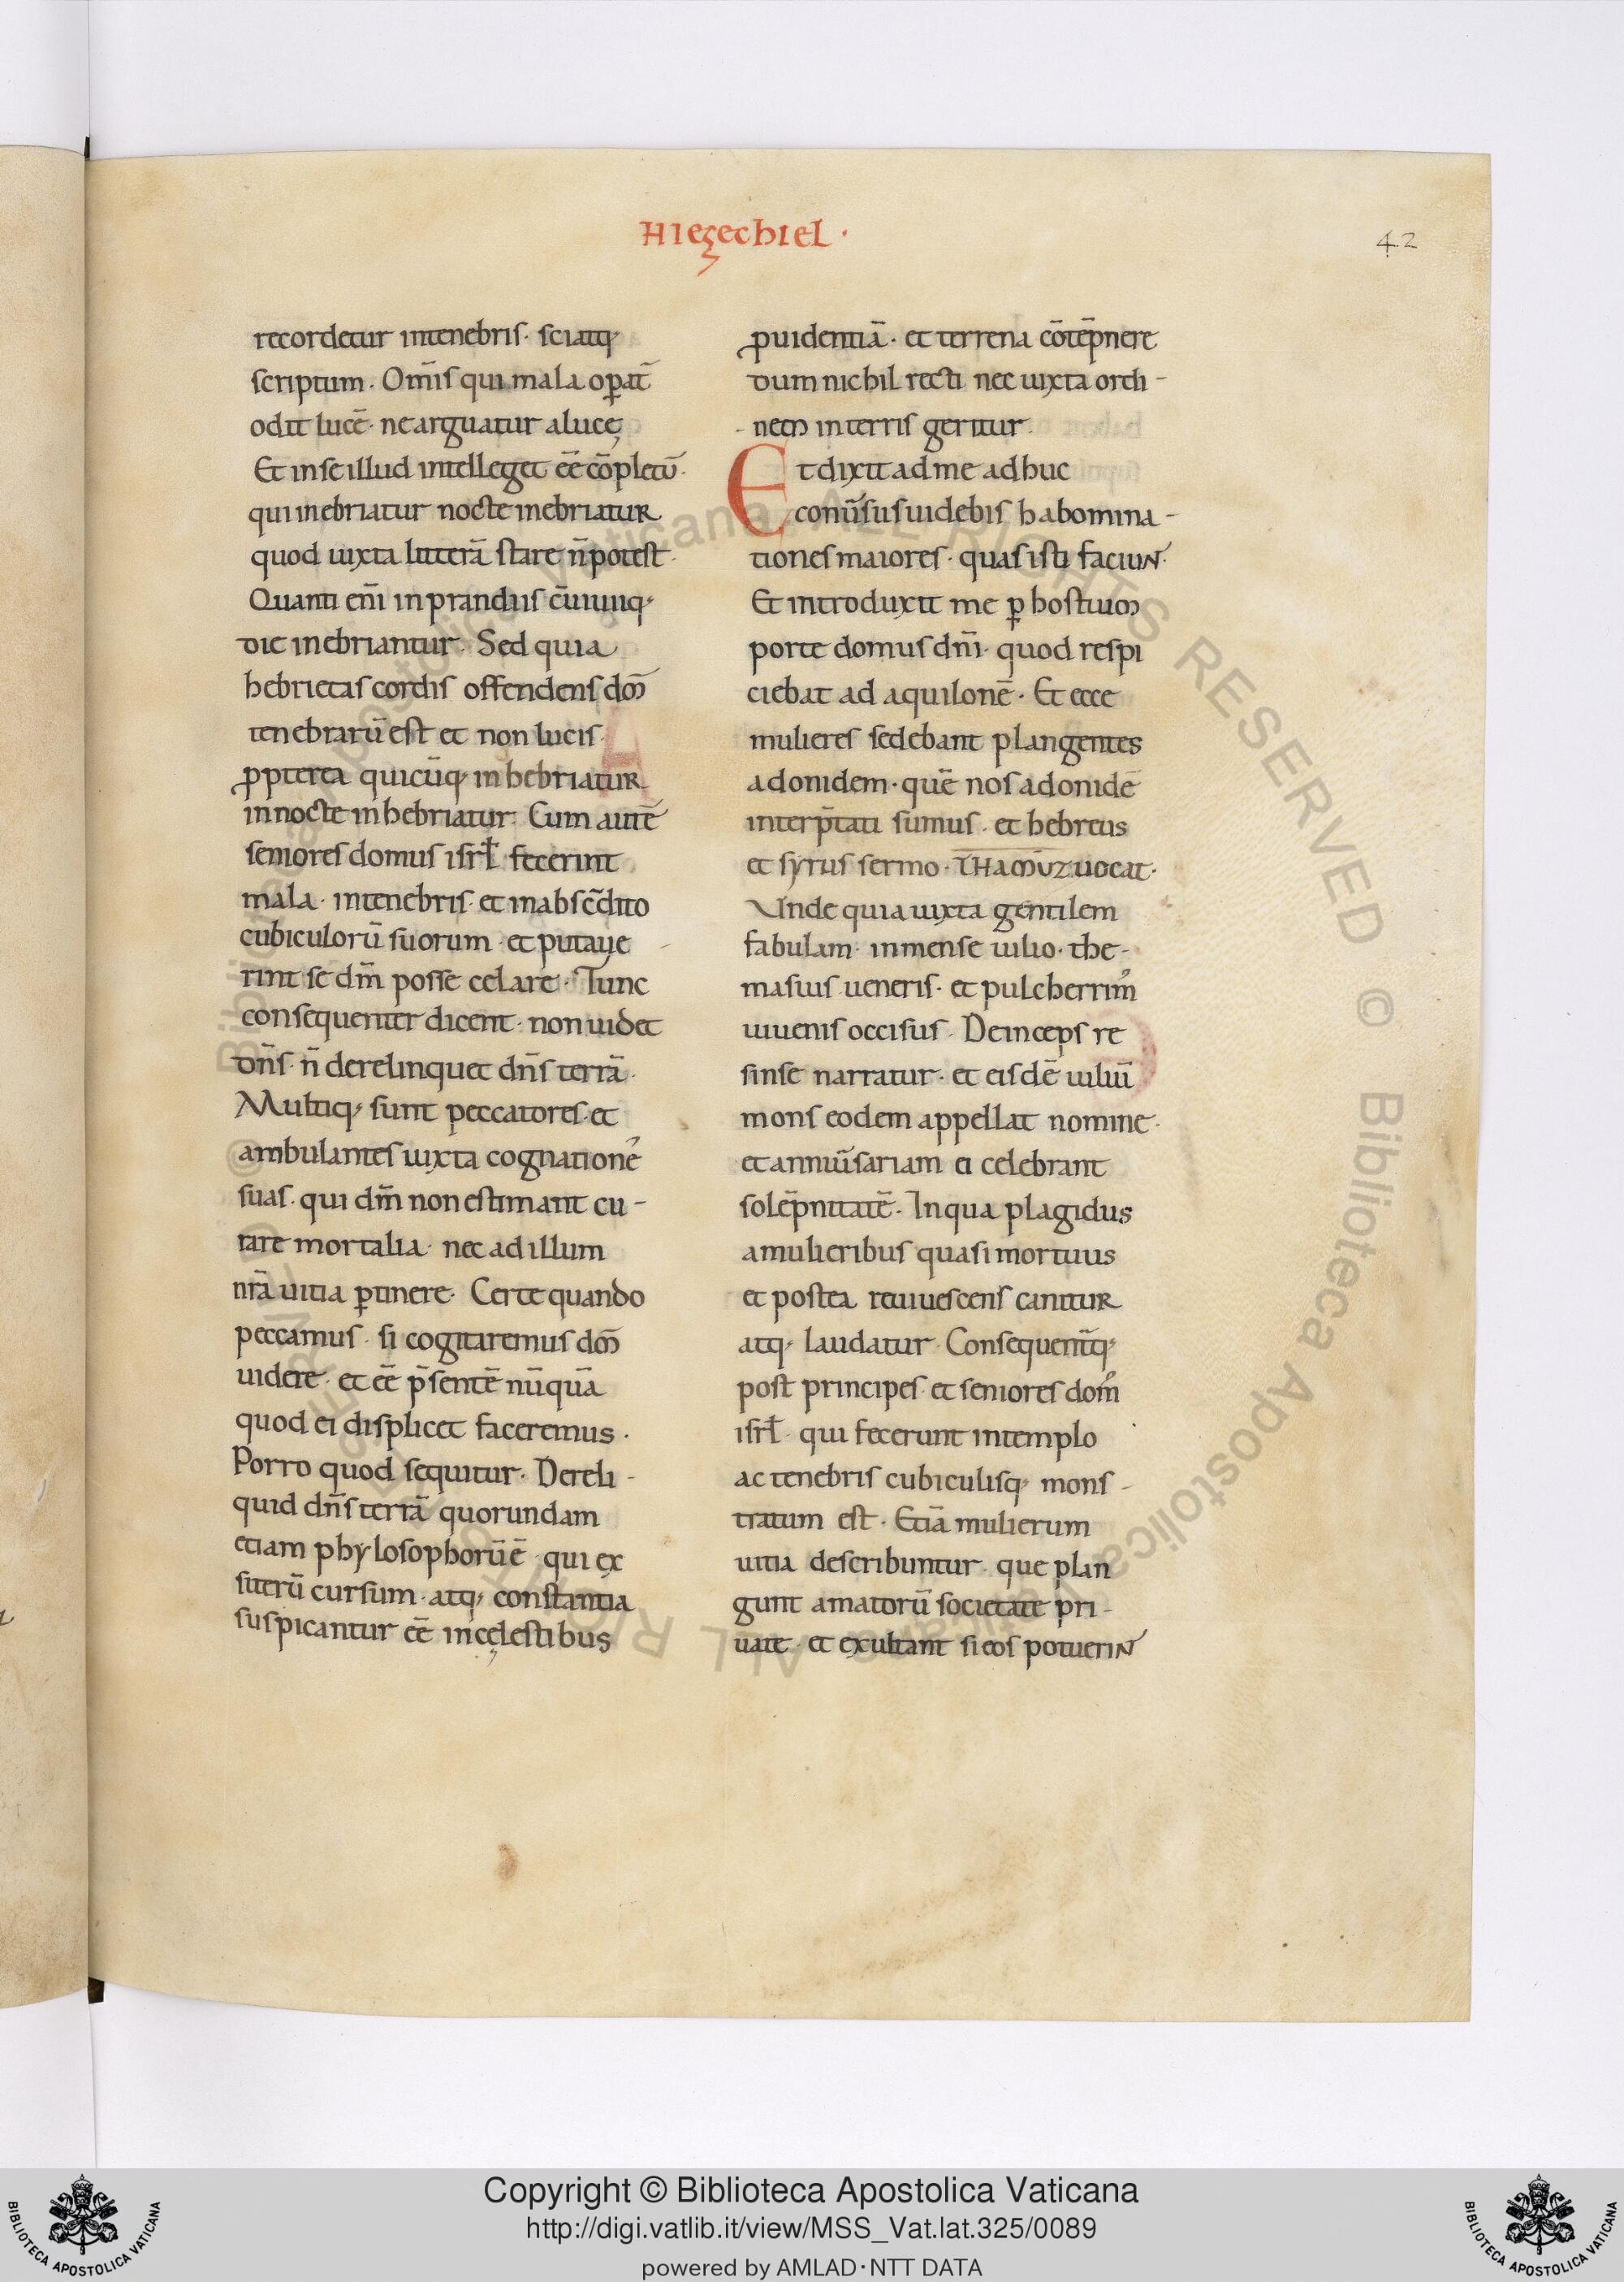 Hiezechiel ·
42
recordetur intenebris· sciatq;
scriptum · Om̄is qui mala op̲at̄
odit lucē· ne arguatur alucę
Et inse illud intelleget eē cōpletū·
qui inebriatur nocte inebriatur
quod iuxta litterā stare n̄ potest·
Quanti en̄i in prandiis c̄uiuiiq;
die inebriantur· Sed quia
hebrietas cordis offendens dōm
tenebrarū est et non lucis·
p̲pterea quicūq; inhebriatur
in nocte inhebriatur· Cum autē
seniores domus isrł fecerint
mala· intenebris· et in absc̄dito
cubiculorū suorum· et putaue
rint se dm̄ posse celare· Tunc
consequenter dicent· non uidet
dn̄s· n̄ derelinquet dn̄s terrā·
Multiq; sunt peccatores· et
ambulantes iuxta cognatione᷒
suas· qui dm̄ non estimant cu-
rare mortalia· nec ad illum
nr̄a uitia p̲tinere· Certe quando
peccamus· si cogitaremus dōm
uidere· et eē p̄sentē nūquā
quod ei displicet faceremus·
Porro quod sequitur· Dereli-
quid dn̄s terrā quorundam
etiam phylosophorū ē· qui ex
siterū cursum· atq; constantia
suspicantur eē incęlestibus
p̲uidentiā· et terrena cōtēpnere
dum nichil recti nec iuxta ordi-
nem in terris geritur·
Et dixit ad me adhuc
conūsus uidebis habomina-
tiones maiores· quas isti faciun·
Et introduxit me p̲ hostium
porte domus dn̄i· quod respi
ciebat ad aquilonē· Et ecce
mulieres sedebant plangentes
adonidem· quē nos adonidē
interp̄tati sumus· et hebreus
et syrus sermo· THAMUZ uocat·
Unde quia iuxta gentilem
fabulam· inmense iulio· the-
masius ueneris· et pulcherrim᷒
iuuenis occisus· Deinceps re
sinse narratur· et eisdē iuliū
mons eodem appellat nomine·
et anniūsariam ei celebrant
solēpnitatē· In qua plagidus
amulieribus quasi mortuus
et postea reuiuescens canitur
atq; laudatur· Consequent̄q;
post principes· et seniores dom᷒
isrł· qui fecerunt intemplo
ac tenebris cubiculisq; mons-
tratum est· Etiā mulierum
uitia describuntur· que plan
gunt amatorū societate pri-
uate· et exultant si eos potuerin
Copyright © Biblioteca Apostolica Vaticana
http://digi.vatlib.it/view/MSS_Vat.lat.325/0089
powered by AMLAD·NTT DATA